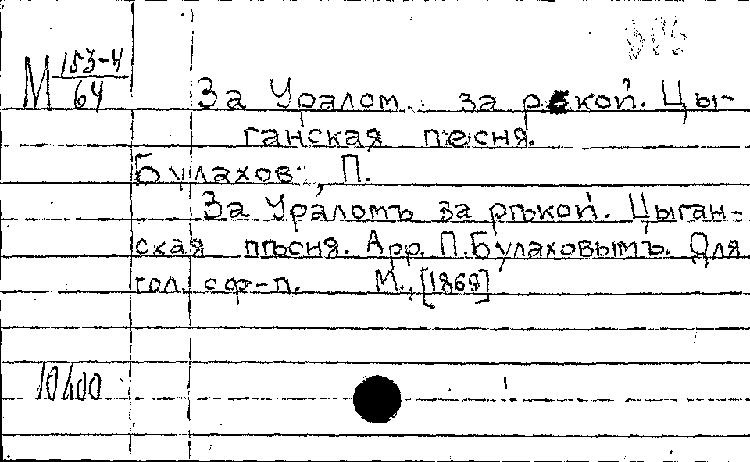 М 153-4/64
За Уралом.. за рекой. Цы-
ганская песня.
Булахов, П.
За Ураломъ за рѣкой. Цыган-
ская пѣсня. Арр. П. Булаховымъ. Для
гол. с ф-п. М., [1869]
10400